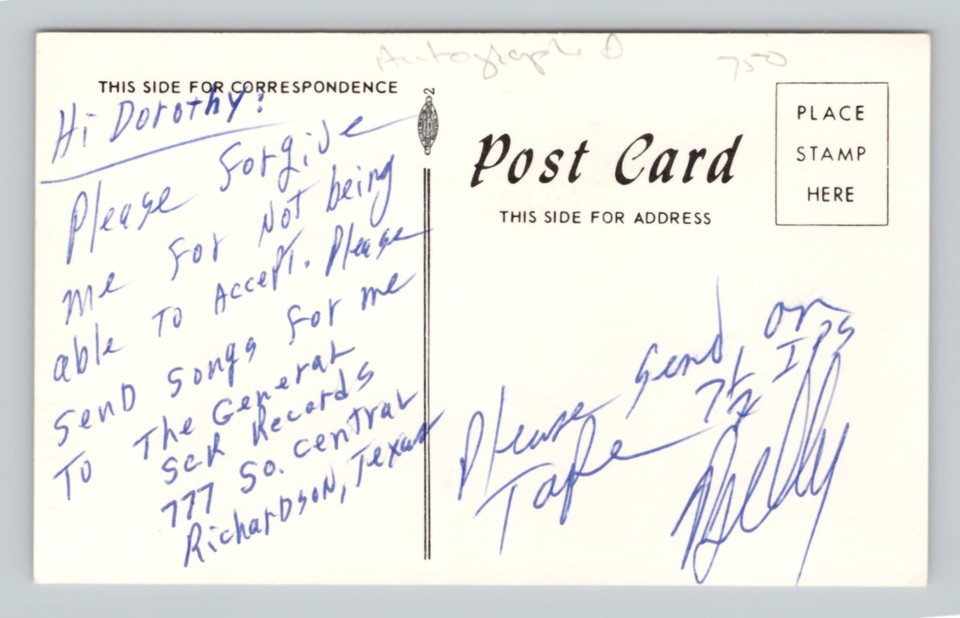 Autographed
750
THIS SIDE FOR CORRESPONDENCE
Hi Dorothy:
Please Forgive
me For Not being
able To Accept. Please
Send Songs For me
To The General
SCR Records
777 So. Central
Richardson, Texas
2
Post Card
THIS SIDE FOR ADDRESS
PLACE
STAMP
HERE
Please Send on
Tape 7½ IPS
Billy